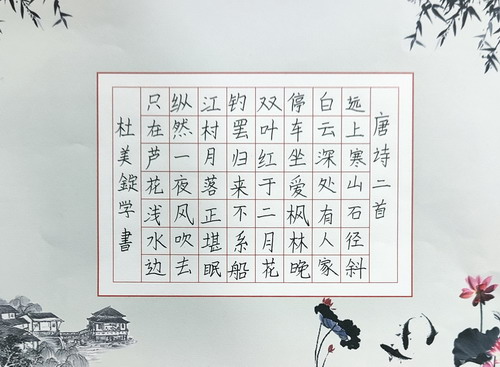 唐诗二首
远上寒山石径斜
白云深处有人家
停车坐爱枫林晚
双叶红于二月花
钓罢归来不系船
江村月落正堪眠
纵然一夜风吹去
只在芦花浅水边
杜美錠学書